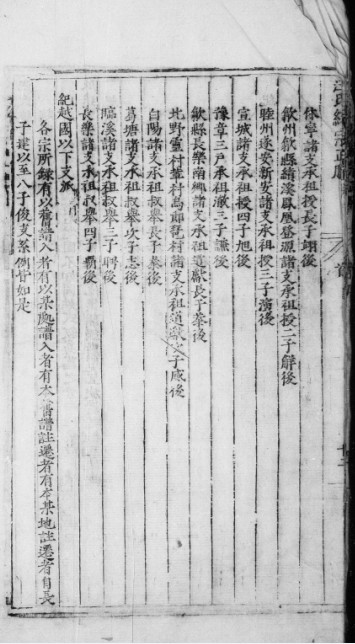 休寧諸支承祖授長子翊後
歙州歙縣績溪鳳凰登源諸支承祖授二子解後
睦州遂安新安諸支承祖授三子演後
宣城諸支承祖授四子旭後
豫章三戶承祖三子謙後
歙縣長樂南鄉諸支承祖道獻長子華後
北野靈村華村諸支承祖道獻子感後
白陽諸支承祖叔舉長子後
葛塘諸支承祖叔舉次子志後
臨溪諸支承祖叔舉三子後
長樂諸支承祖叔舉四子霸後
紀越國以下支
各宗所錄有以舊譜入者有以某處譜入者有本舊譜註遷者有本某地註遷者自長
子建以至八子俊支系例皆如是